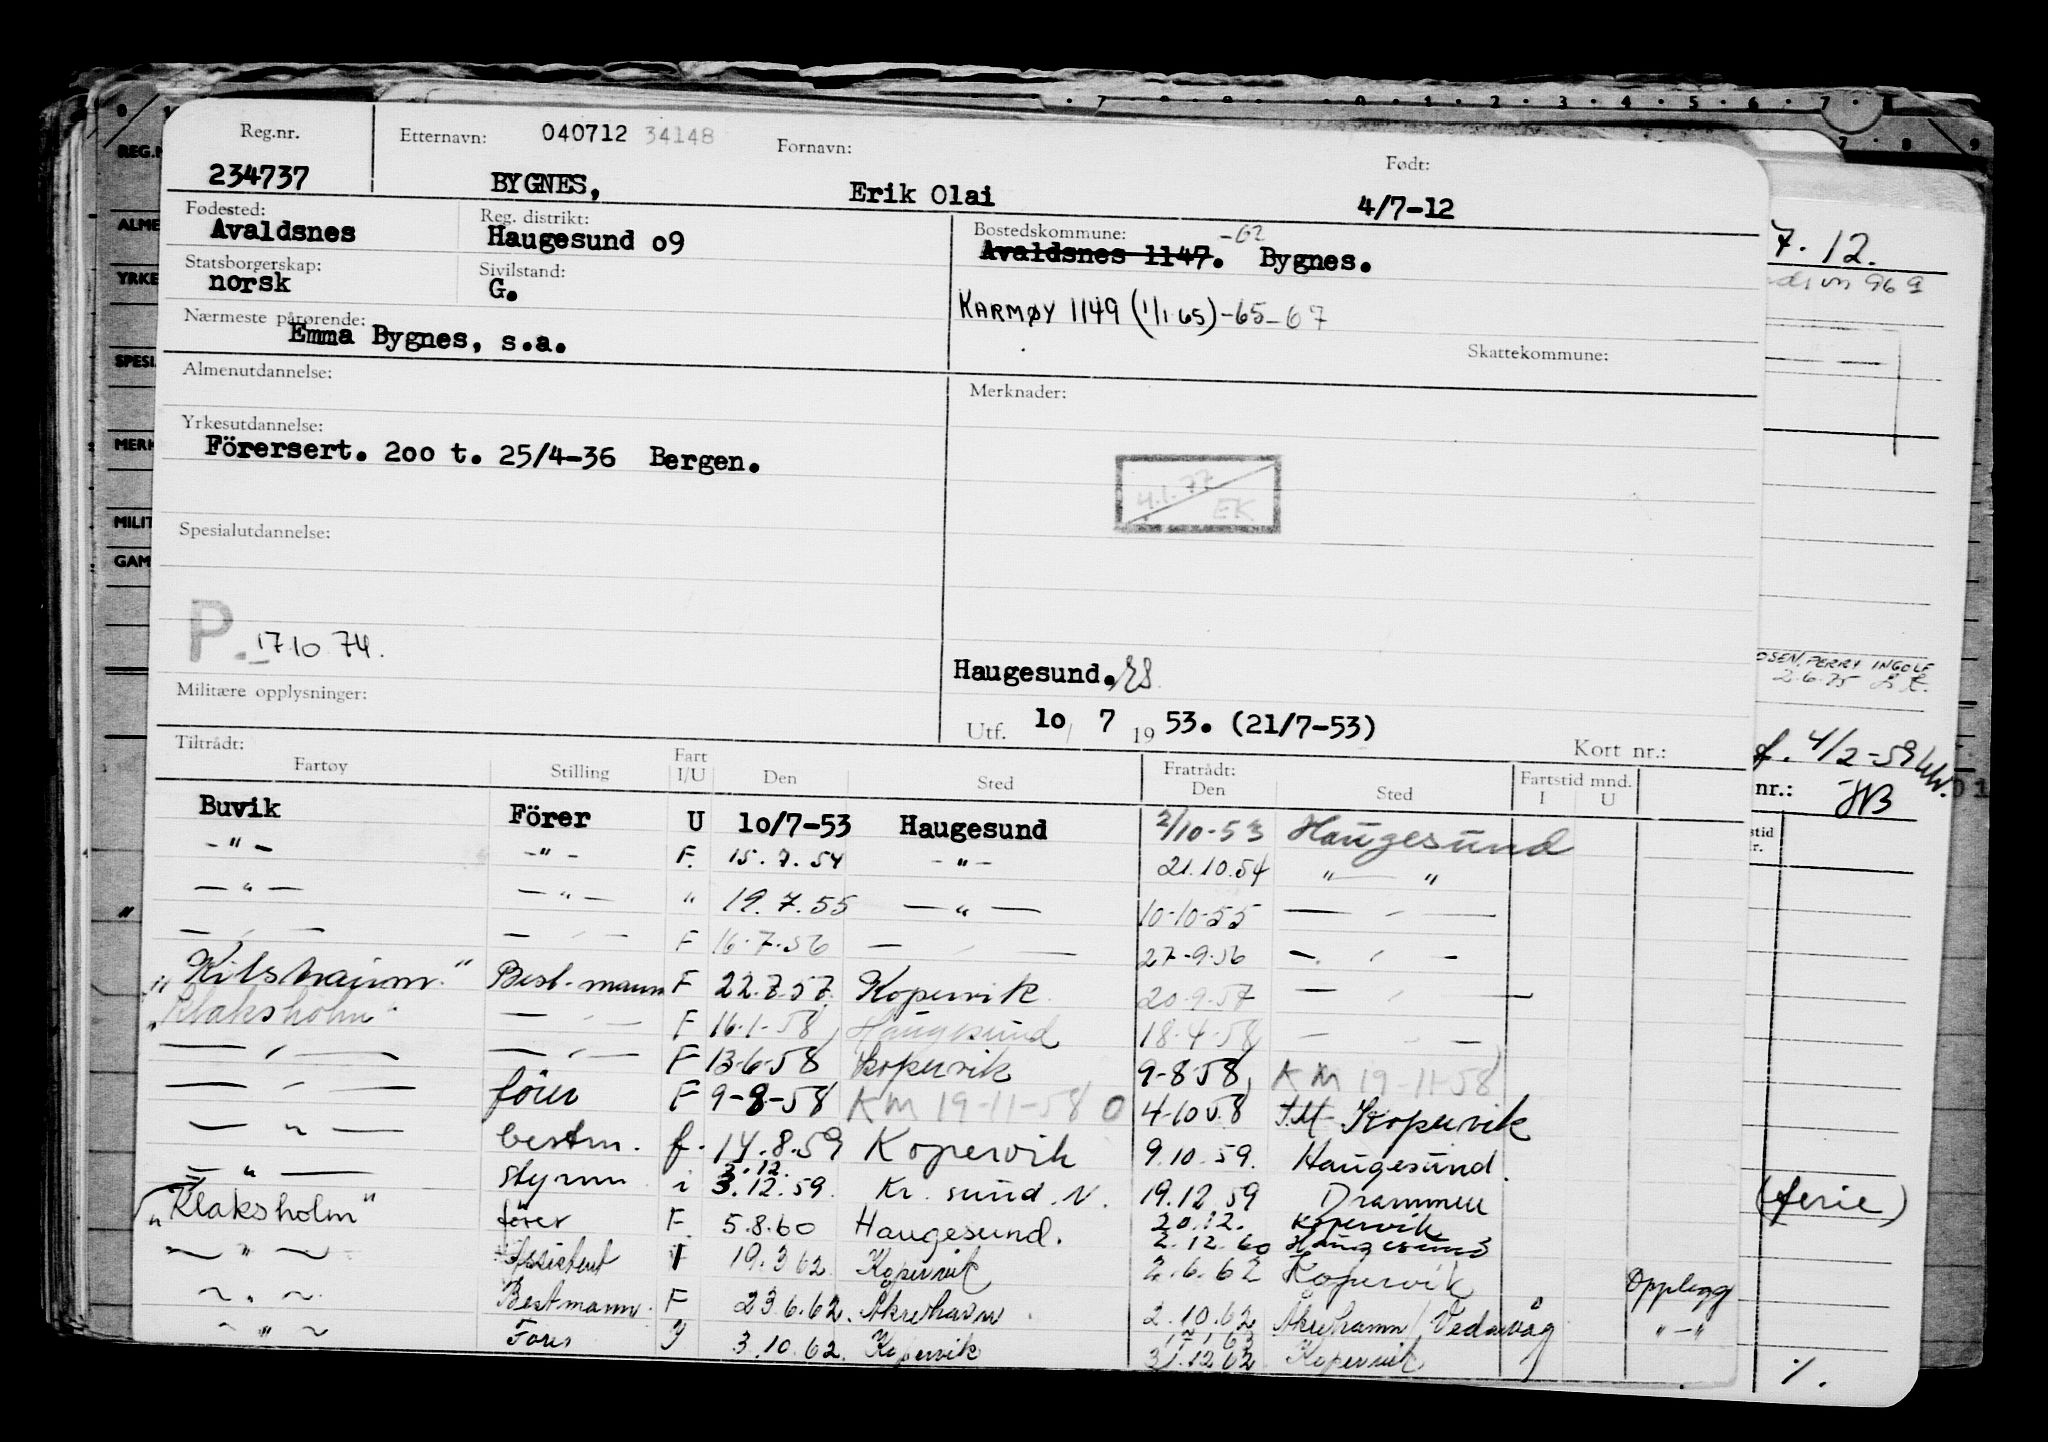 Reg.nr. Etternavn: 040712 34148 Fornavn: Født:
234737 BYGNES, Erik Olai 4/7-12
Fødested: Reg. distrikt: Bostedskommune: -62
Avaldsnes Haugesund o9 Avaldsnes 1147. Bygnes.
Statsborgerskap: Sivilstand:
norsk G.
KARMØY 1149 (1/1 65)-65-67
Nærmeste pårørende:
Emma Bygnes, s.a.
Skattekommune:
Almenutdannelse: Merknader:
Yrkesutdannelse:
Förersert. 2oo t. 25/4-36 Bergen.
4.1.77
EK
Spesialutdannelse:
P. 17.10 74.
Haugesund.
Militære opplysninger:
Utf. 1o/ 7 19 53. (21/7-53)
Tiltrådt: Kort nr.:
Fartøy Stilling Fart I/U Den Sted Fratrådt: Den Sted Fartstid mnd. I U
Buvik Förer U 1o/7-53 Haugesund 2/10-53 Haugesund
-"- -"- F. 15.7.54 -"- 21.10.54 "—"
—"— —"— " 19.7.55 —"— 10-10-55 —"—
—"— —"— F 16.7.56 —"— 27-9-56 —"—
Best-mann F 22.7.57. Kopervik 20.9.57 —"—
"Klaksholm" —"— F 16.1.58 Haugesund 18.4.58 —"—
—"— —"— F 13-6-58 Kopervik 9-8-58 KM 19-11-58
—"— förer F 9-8-58 KM 19-11-58 4-10-58 Kopervik
—"— bestm. f. 14.8.59 Kopervik 9.10.59. Haugesund.
—"— styrm i 3.12.59. Kr. sund. N. 19.12.59 Drammen
3.12. 20.12. Kopervik
"Klaksholm" förer F. 5.8.60 Haugesund. 2.12.60 Haugesund
—"— Assistent I 19.3.62 Kopervik 2.6.62 Kopervik Opplegg
—"— Bestmann. F 23.6.62. Åkrehavn 2.10.62 Åkrehamn/Vedavåg "—"
—"— Förer 3.10.62. Kopervik 31.12.62 Kopervik
7.12.
PERRY INGOLF
2.6.75
f. 4/2-59
nr.: HB
(ferie)
REG.N
ALME
YRKE
SPESI
MERK
MILIT
GAM